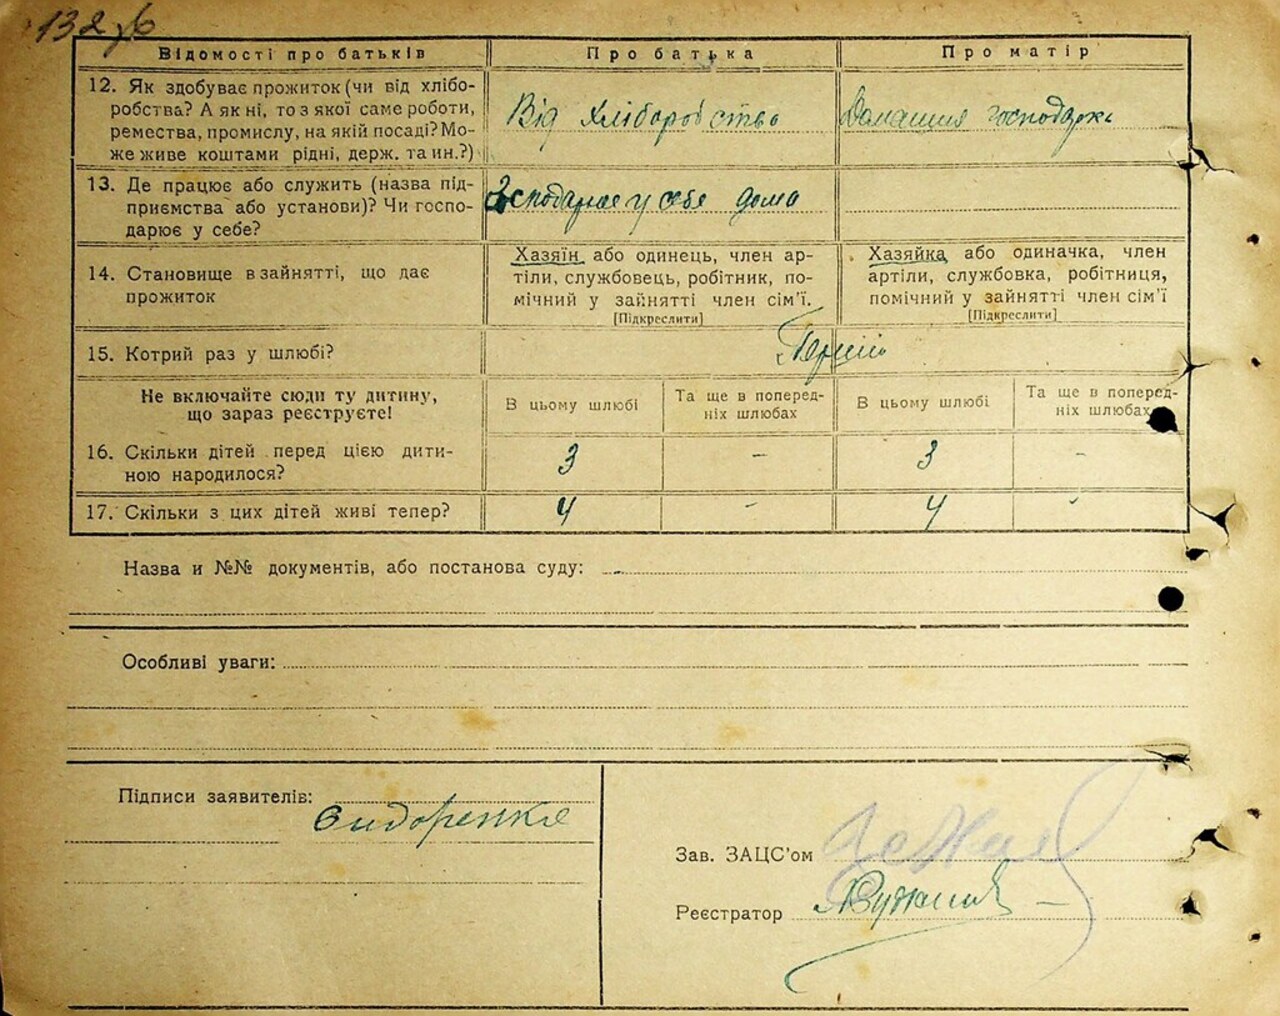 132 зб
Відомості про батьків
Про батька
Про матір
12. Як здобуває прожиток (чи від хлібо-
робства? А як ні, то з якої саме роботи,
ремества, промислу, на якій посаді? Мо-
же живе коштами рідні, держ. та ин.?)
Від хліборобство
Домашня господарк
13. Де працює або служить (назва під-
приємства або установи)? Чи госпо-
дарює у себе?
Господарює у себе дома
14. Становище в зайнятті, що дає
прожиток
Хазяїн або одинець, член ар-
тілі, службовець, робітник, по-
мічний у зайнятті член сім'ї.
[Підкреслити]
Хазяйка або одиначка, член
артіли, службовка, робітниця,
помічний у зайнятті член сім'ї
[Підкреслити]
15. Котрий раз у шлюбі?
Перший
Не включайте сюди ту дитину,
що зараз реєструєте!
В цьому шлюбі
Та ще в поперед-
ніх шлюбах
В цьому шлюбі
Та ще в поперед-
ніх шлюбах
16. Скільки дітей перед цією дити-
ною народилося?
3 – 3 -
17. Скільки з цих дітей живі тепер?
4 - 4 -
Назва и №№ документів, або постанова суду:
Особливі уваги:
Підписи заявителів:
Сидоренко
Зав. ЗАЦС'ом
Реєстратор